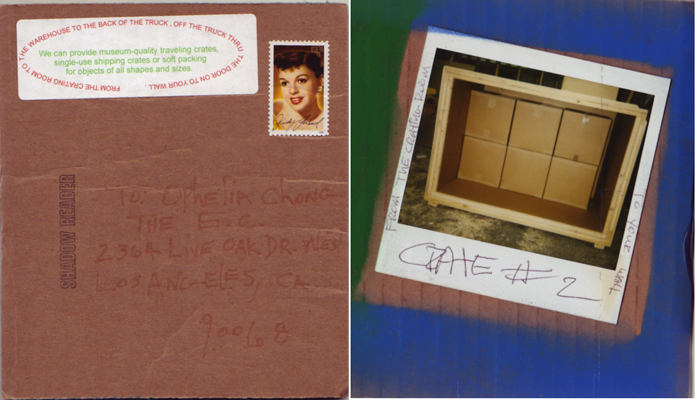 FROM THE CRATING ROOM TO THE WAREHOUSE TO THE BACK OF THE TRUCK, OFF THE TRUCK THRU THE DOOR ON TO YOUR WALL
We can provide museum-quality traveling crates,
single-use shipping crates or soft packing
for objects of all shapes and sizes.
Judy Garland
SHADOW READER
TO: Ophelia Chong
THE E.C.
2364 LIVE OAK DR. WEST
LOS ANGELES, CA.
90068
FROM THE CRATING ROOM
TO YOUR WALL
CRATE # 2